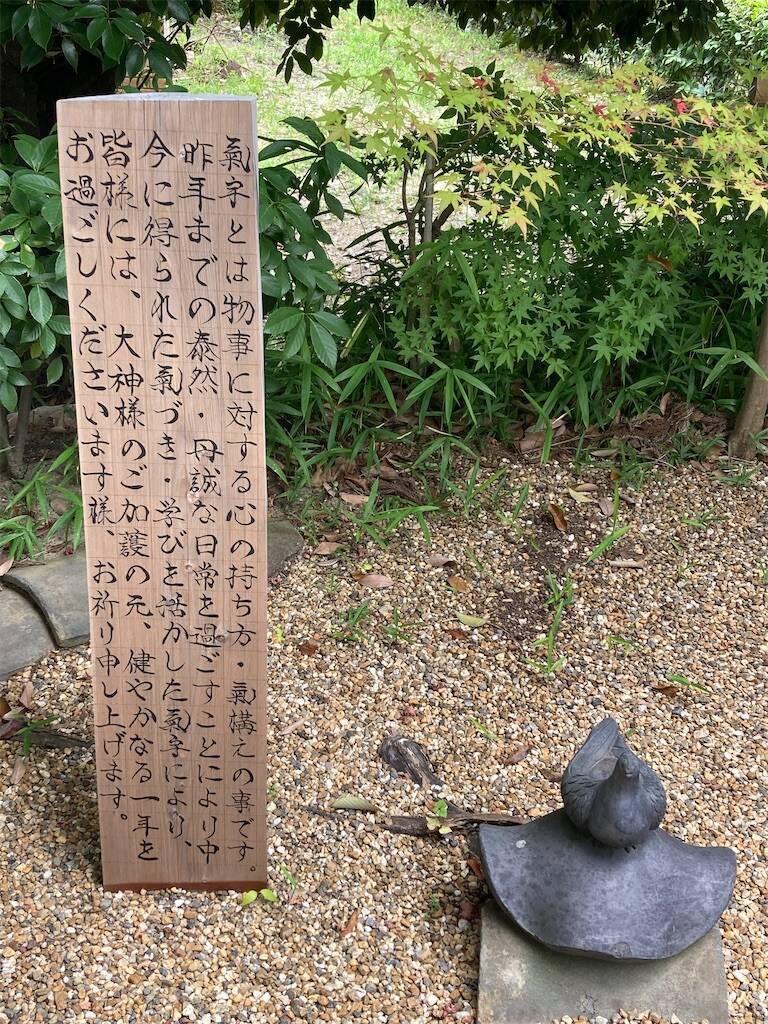 氣宇とは物事に対する心の持ち方・氣構えの事です。
昨年までの泰然・丹誠な日常を過ごすことにより中
今に得られた氣づき・学びを活かした氣宇により、
皆様には、大神様のご加護の元、健やかなる一年を
お過ごしくださいます様、お祈り申し上げます。